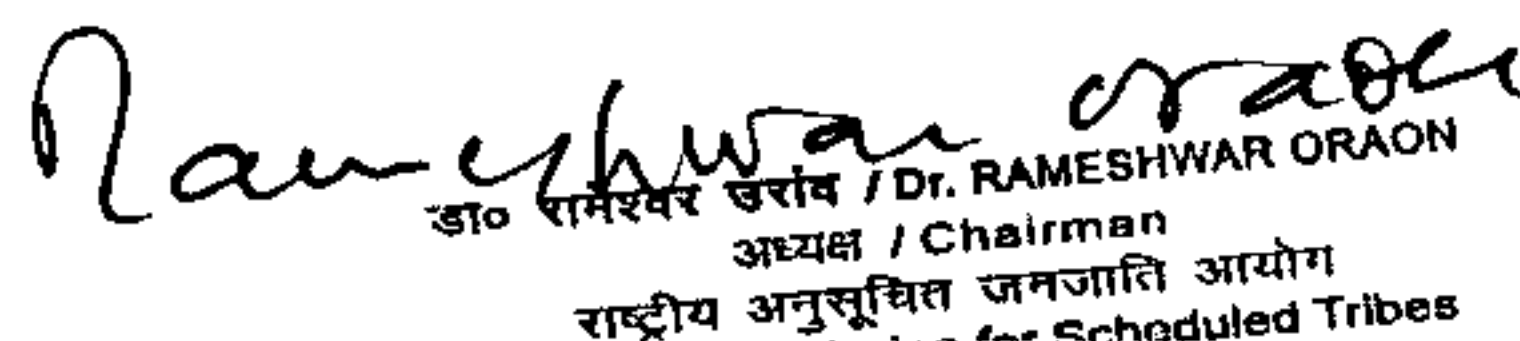 Rameshwar Oraon
डा० रामेश्वर उरांव / Dr. RAMESHWAR ORAON
अध्यक्ष / Chairman
राष्ट्रीय अनुसूचित जनजाति आयोग
for Scheduled Tribes